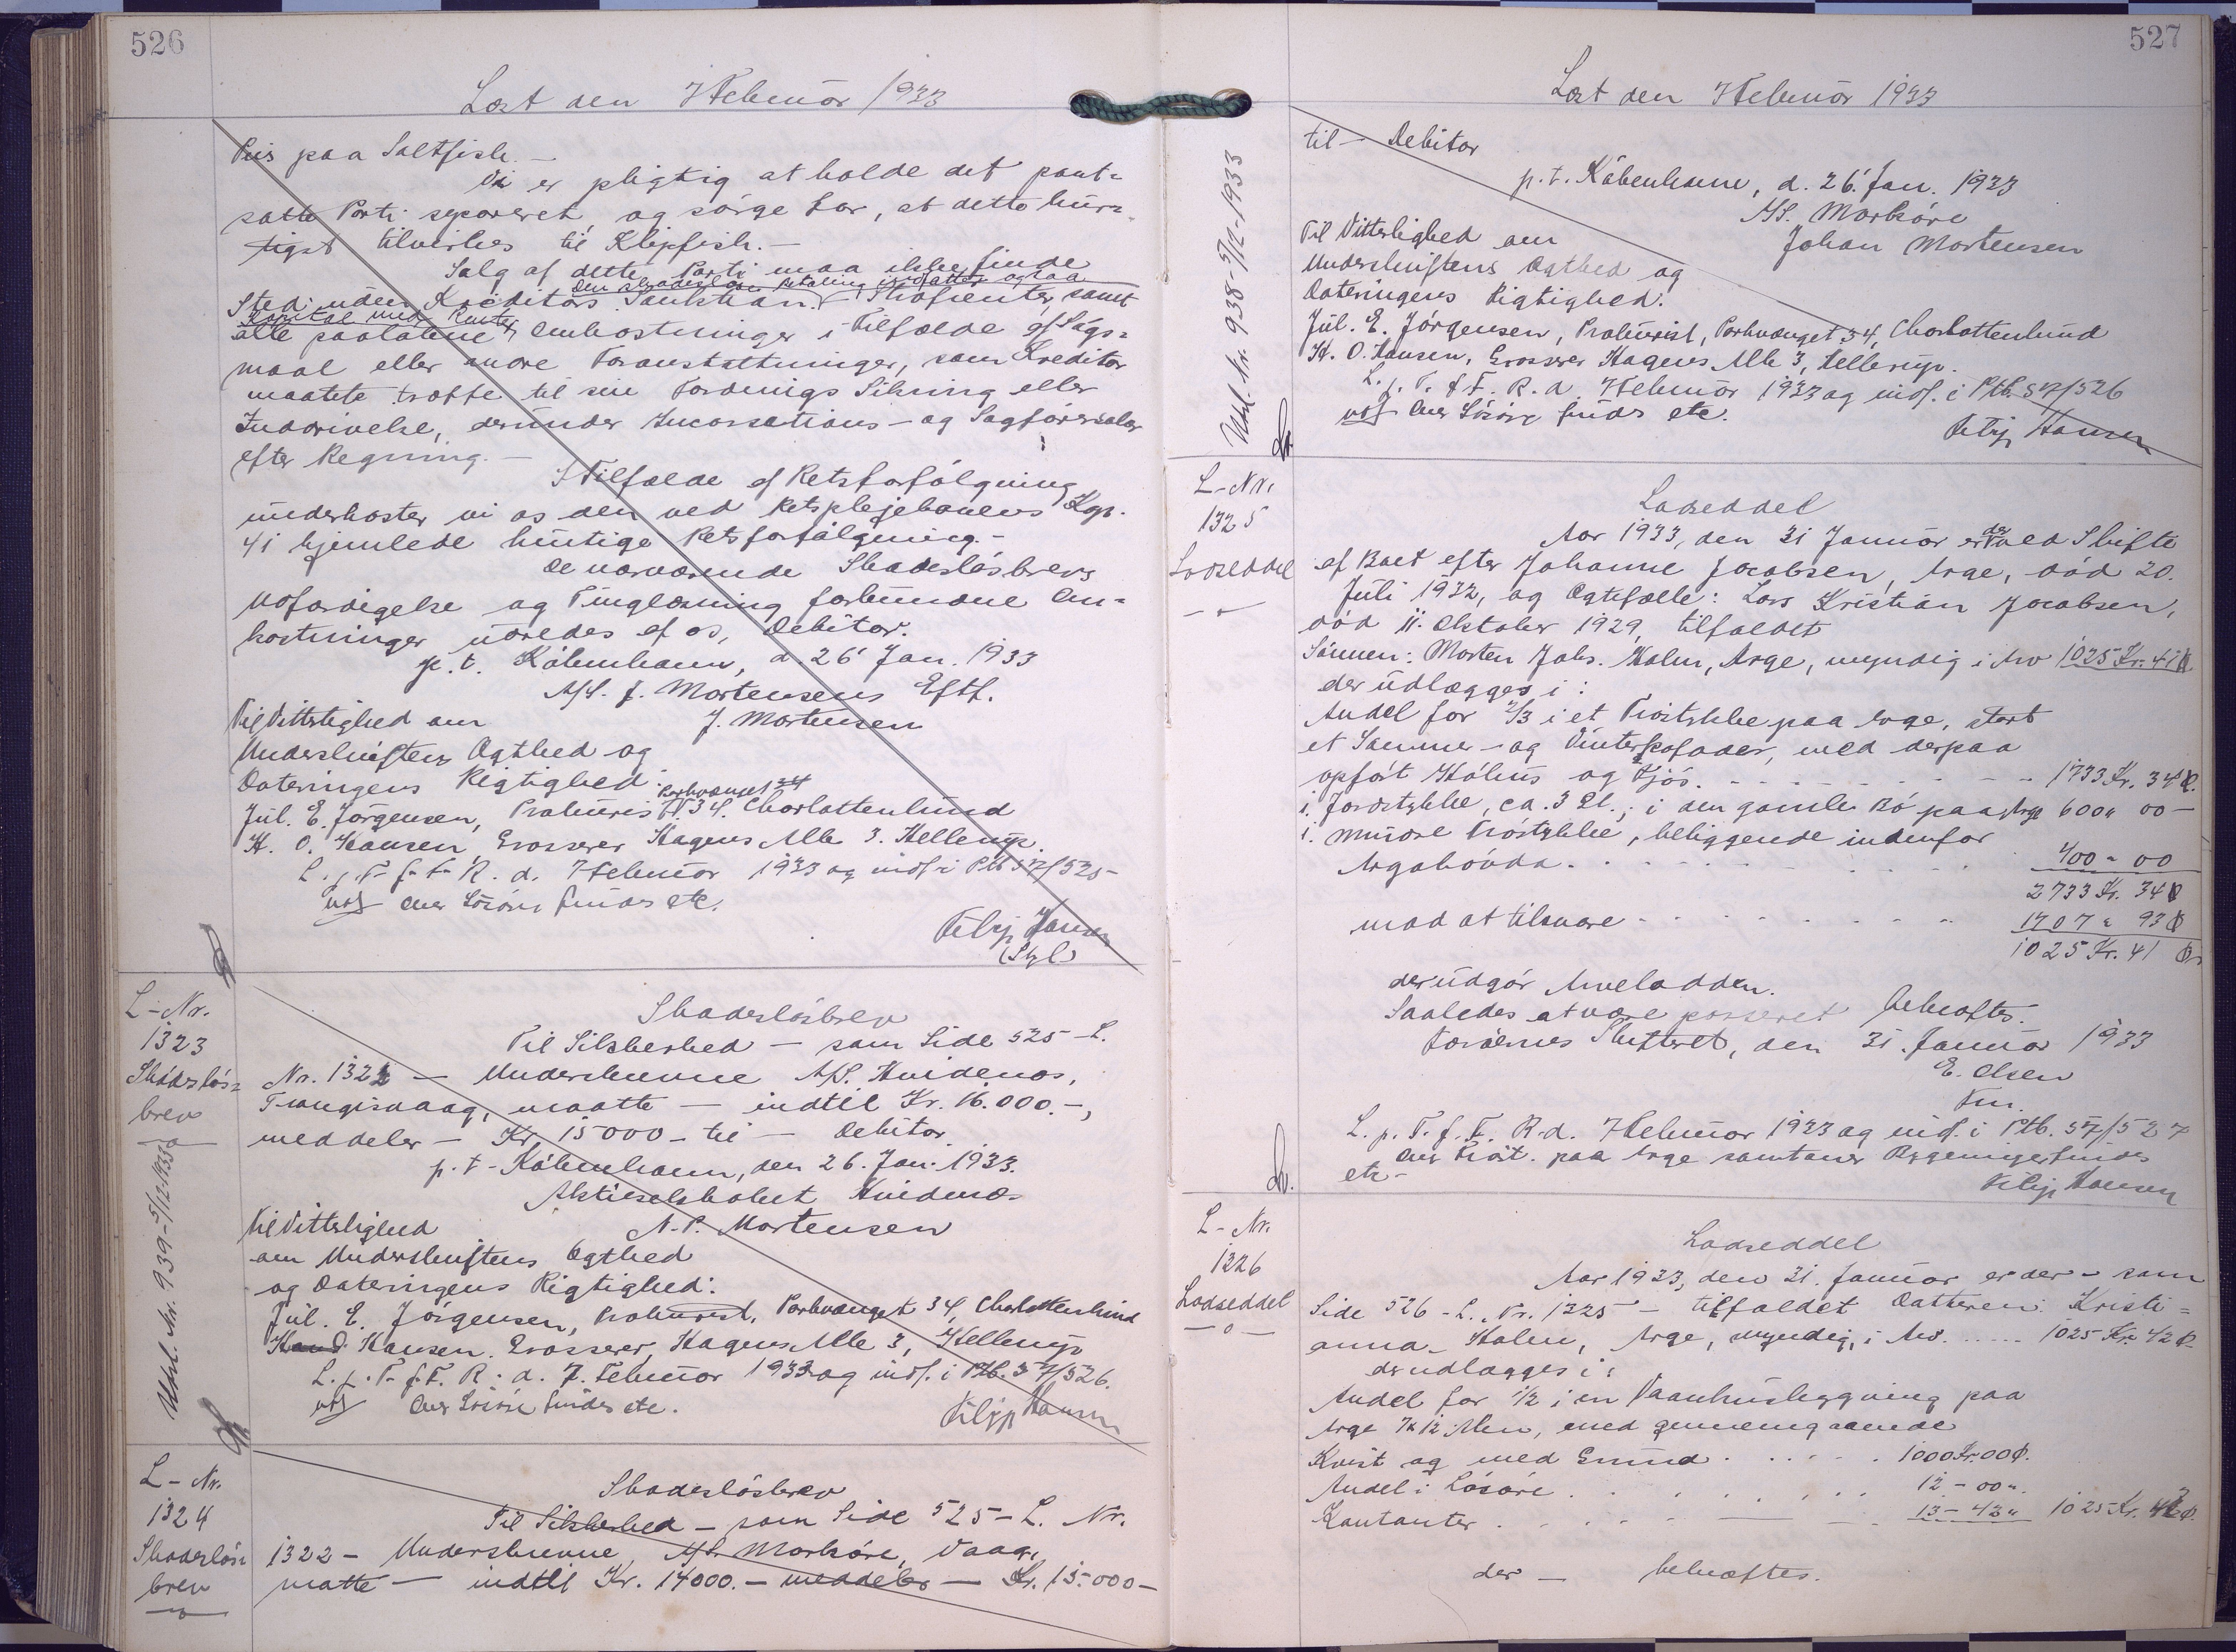 526
Læst den 7 Februar 1933
Pris paa Saltfisk. —
Vi er pligtig at holde det pant-
satte Parti separeret og sørge for, at dette hur-
tigst tilvirkes til Klipfisk. —
Salg af dette Parti maa ikke finde
Den skadesløse Betaling indfatter ogsaa
Sted uden Kreditors Sanktion. Strafrenter, samt
Kapital med Renter
alle paaløbne Omkostninger i Tilfælde af Søgs-
maal eller andre Foranstaltninger, som Kreditor
maatte træffe til sin Fordrings Sikring eller
Inddrivelse, derunder Incassations- og Sagførersalær
efter Regning. —
I Tilfælde af Retsforfølgning
underkaster vi os den ved Retsplejelovens Kap.
41 hjemlede hurtige Retsforfølgning. —
De nærværende Skadesløsbrevs
Udfærdigelse og Tinglæsning forbundne Om-
kostninger udredes af os, Debitor.
p. t. København, d. 26' Jan. 1933
A/S. J. Mortensens Eftf.
Til Vitterlighed om J. Mortensen
Underskriftens Ægthed og
Dateringens Rigtighed:
Parkvænget 34
Jul. E. Jörgensen, Prokurist, 34. Charlottenlund
K. O. Hansen, Grosserer Hagens Alle 3. Hellerup.
L. p. T. f. F. R. d. 7 Februar 1933 og indf. i Ptb 57/525
Udsl over Lösöre findes etc.
Filip Hansen
(Styl)
L-Nr.
1323
Skadeslös-
brev
Udsl. Nr. 939-5/12-1933
Skadeslösbrev
Til Sikkerhed — som Side 525-L.
Nr. 1322 — Underskrevne A/S. Hvidenæs,
Trangisvaag, maatte — indtil Kr. 16.000.-,
meddeler — Kr. 15000 - til — Debitor.
p. t. København, den 26. Jan. 1933.
Aktieselskabet Hvidenæs
Til Vitterlighed N. P. Mortensen
om Underskriftens Ægthed
og Dateringens Rigtighed:
Jul. E. Jörgensen, Prokurist, Parkvænget 34, Charlottenlund
Hansen. Grosserer, Hagens Alle 3, Hellerup
L. p. T. f. F. R. d. 7. Februar 1933 og indf. i Ptb. 57/526.
Udsl over Lösöre findes etc.
Filip Hansen
L-Nr.
1324
Skadeslös-
brev
Skadeslösbrev
Til Sikkerhed — som Side 525 - L. Nr.
1322 - Underskrevne, A/S. Morköre, Vaag,
matte — indtil Kr. 14000. - meddeler — Kr. 15.000 -
527
Læst den 7 Februar 1933
Udsl. Nr. 938-5/12-1933
til — Debitor
p. t. København, d. 26' Jan. 1933
A/S. Morköre
Til Vitterlighed om Johan Mortensen
Underskriftens Ægthed og
Dateringens Rigtighed:
Jul. E. Jörgensen, Prokurist, Parkvænget 34, Charlottenlund
K. O. Hansen, Grosserer Hagens Alle 3, Hellerup.
L. p. T. f. F. R. d. 7 Februar 1933 og indf. i Ptb. 57/526
Udsl over Lösöre findes etc.
Filip Hansen
L-Nr.
1325
Lodseddel
Lodseddel
Aar 1933, den 31 Januar er der ved Skifte
af Boet efter Johanne Jacobsen, Arge, död 20.
Juli 1932, og Ægtefælle: Lars Kristian Jacobsen,
död 11. Oktober 1929, tilfaldet
Sönnen: Morten Johs. Holm, Arge, myndig i Arv 1025 Kr. 41 Ø.
der udlægges i:
Andel for 2/3 i et Tröstykke paa Arge, stort
et Sommer- og Vinterkofoder, med derpaa
opfört Höhus og Fjös. 1733 Kr. 34 Ø.
i Jordstykke, ca. 3 Sk.; i den gamle Bö paa Arge 600 " 00 -
i mindre Tröstykke, beliggende indenfor
Argahövda. 400 - 00
2733 Kr. 34 Ø
mod at tilsvare 1707 " 93 Ø
1025 Kr. 41 Ø
der udgör Arvelodden.
Saaledes at være passeret bekræftes.
Færöernes Skifteret, den 31. Januar 1933
E. Olsen
Fm.
L. p. T. f. F. R. d. 7 Februar 1933 og indf. i Ptb. 57/527
etc.
Filip Hansen
L-Nr.
1326
Lodseddel
Lodseddel
Aar 1933, den 31. Januar er der — som
Side 526 - L. Nr. 1325 — tilfaldet Datteren: Kristi-
anna Holm, Arge, myndig, i Arv 1025 Kr. 42 Ø
der udlægges i:
Andel for 1/2 i en Vaanhusbygning paa
Arge 7x12 Alen, med gennemgaaende
Kvist og med Grund 1000 Kr. 00 Ø.
Andel i Lösöre 12 - 00 "
Kontanter 13 - 42 " 1025 Kr. 42 Ø.
der — bekræftes.